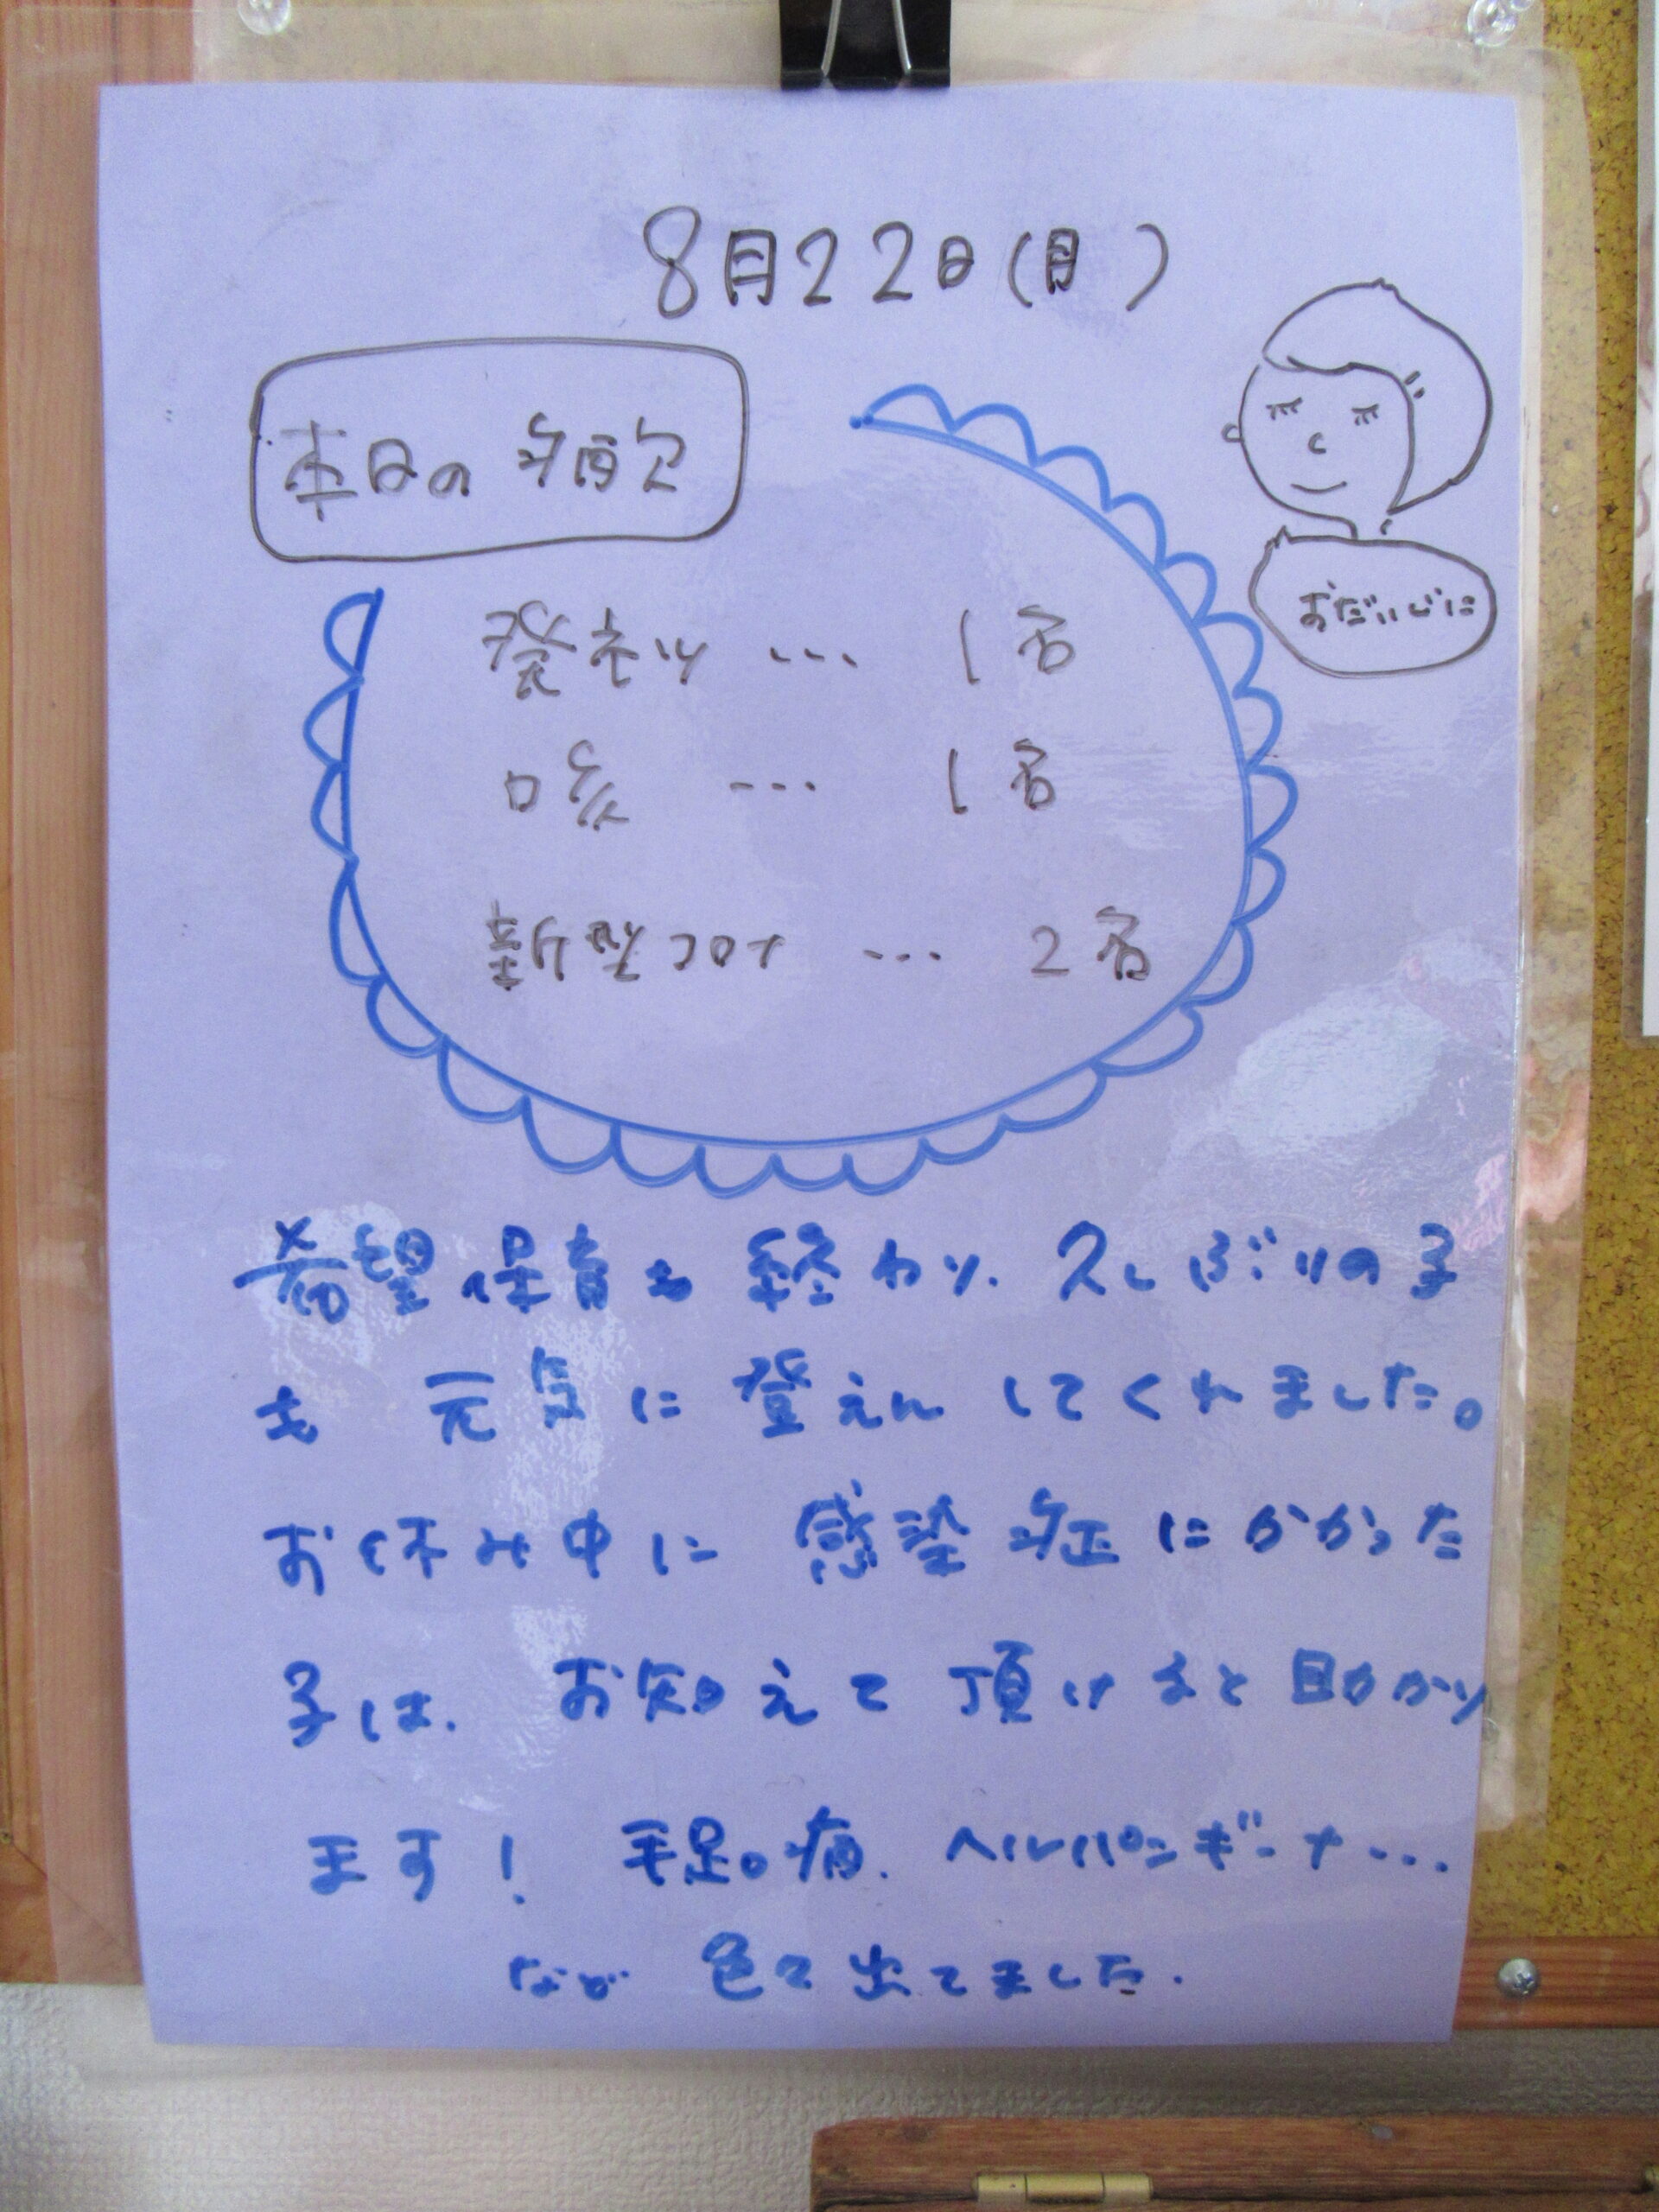 8月22日(月)
本日の病欠
おだいじに
発ネツ … 1名
口咳 … 1名
新型コロナ … 2名
希望保育も終わり、久しぶりの子
も 元気に登えんしてくれました。
お休み中に 感染症にかかった
子は、お知えて頂けまと助かり
ます! 手足口病、ヘルパンギーナ…
など 色々出てました。